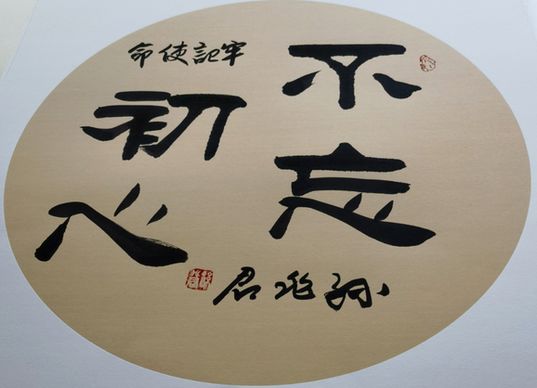 不忘
初心
牢記使命
孙兆君